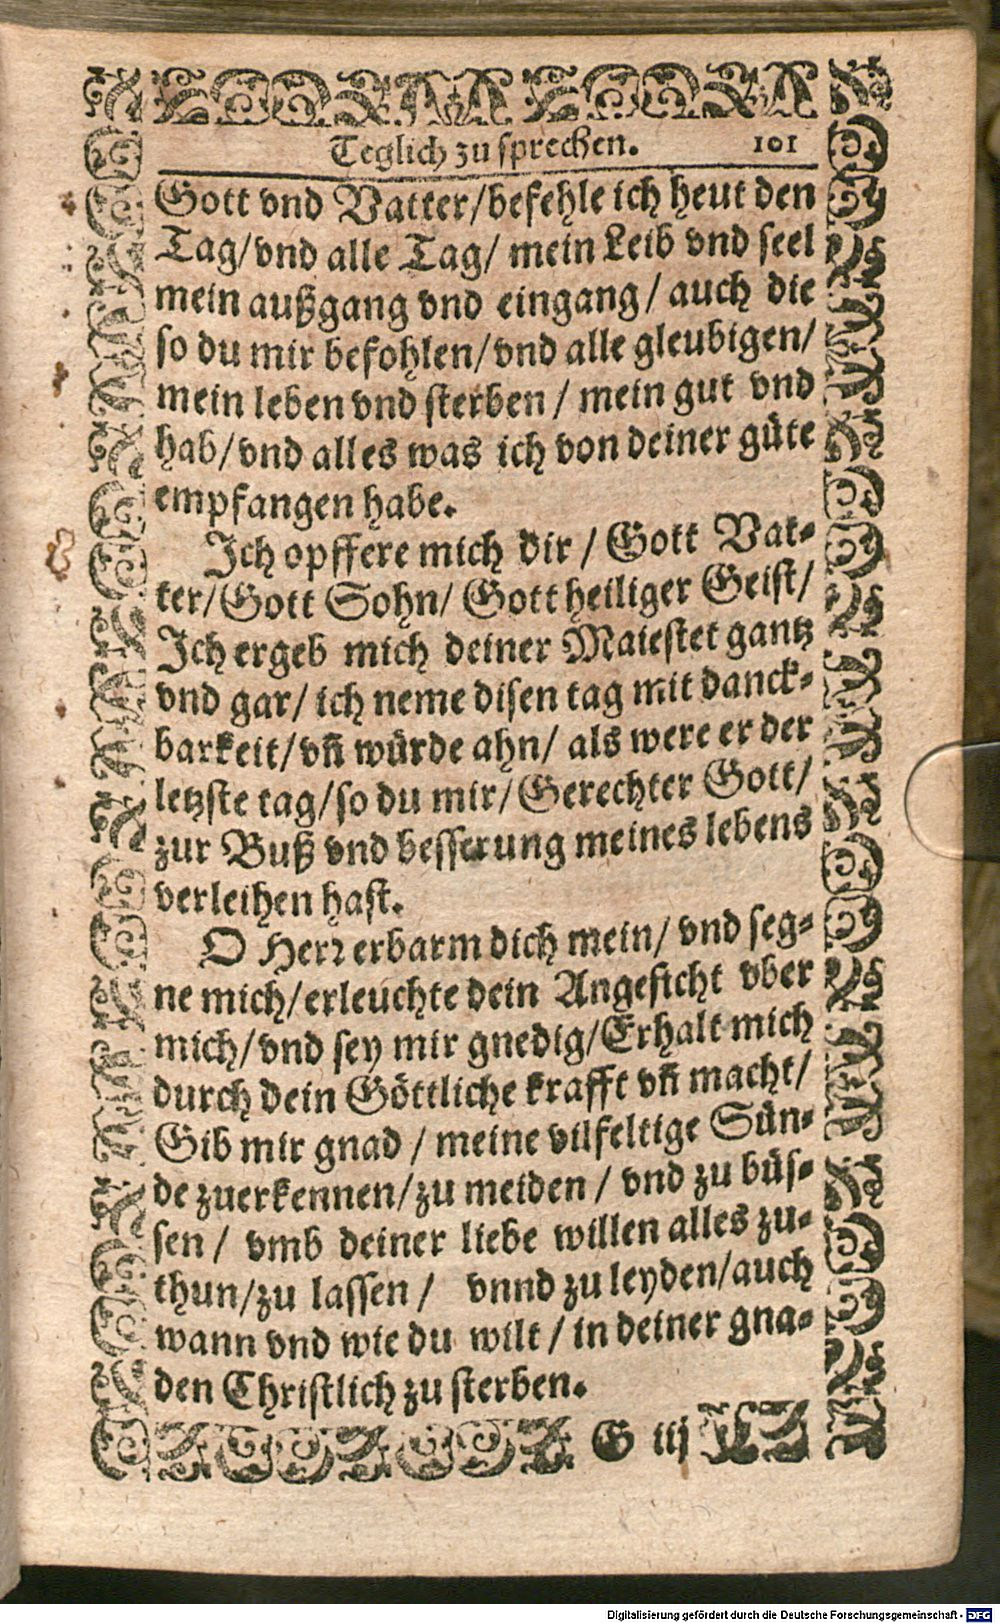 Teglich zu sprechen. 101
Gott vnd Vatter/befehle ich heut den
Tag/vnd alle Tag/ mein Leib vnd seel
mein außgang vnd eingang/ auch die
so du mir befohlen/vnd alle gleubigen/
mein leben vnd sterben / mein gut vnd
hab/vnd alles was ich von deiner güte
empfangen habe.
Ich opffere mich dir / Gott Vat-
ter/Gott Sohn/ Gott heiliger Geist/
Ich ergeb mich deiner Maiestet gantz
vnd gar/ ich neme disen tag mit danck-
barkeit/vn̄ würde ahn/ als were er der
letzste tag/so du mir/Gerechter Gott/
zur Buß vnd besserung meines lebens
verleihen hast.
O Herr erbarm dich mein/ vnd seg-
ne mich/erleuchte dein Angesicht vber
mich/vnd sey mir gnedig/Erhalt mich
durch dein Göttliche krafft vn̄ macht/
Gib mir gnad / meine vilfeltige Sün-
de zuerkennen/zu meiden / vnd zu büs-
sen / vmb deiner liebe willen alles zu-
thun/zu lassen / vnnd zu leyden/auch
wann vnd wie du wilt / in deiner gna-
den Christlich zu sterben.
G iij
Digitalisierung gefördert durch die Deutsche Forschungsgemeinschaft - DFG